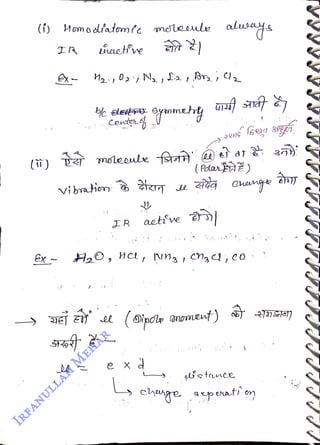 (i) Homodiatomic molecule always
IR inactive होते है|
Ex - H2, O2, N2, I2, Br2, Cl2
b/c center of symmetry पायी जाती है|
स्थाई द्विध्रुव आघूर्ण
(ii) ऐसे molecule जिनमें μ हो ता है उनमें
(Polar होते है)
Vibration के दौरान μ सदैव change होगा
⇓
IR active होगा|
Ex - H2O, HCl, NH3, CH3Cl, CO
→ यहाँ हमें μ (Dipole moment) को समझना
जरूरी है -
μ = e x d
→ distance
→ charge seperation
IRFANULLAH MEHAR